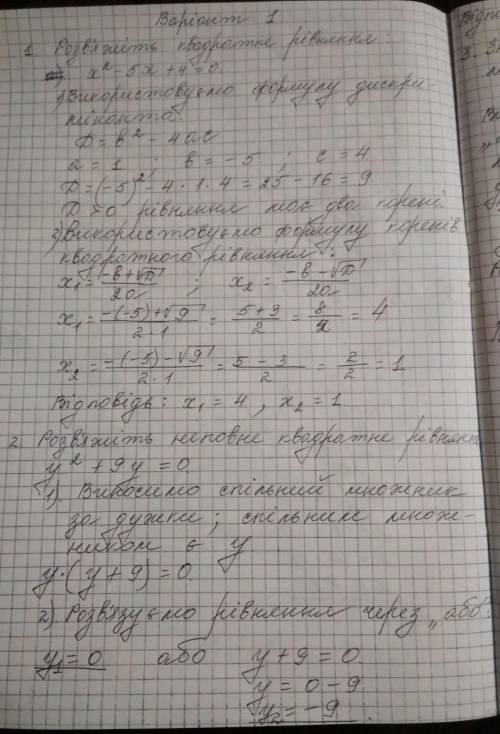 Варіант 1
1. Розв'яжіть квадратне рівняння:
x² - 5x + 4 = 0.
1) Використовуємо формулу дискри-
мінанта:
D = b² - 4ac
a = 1 ; b = -5 ; c = 4
D = (-5)² - 4 · 1 · 4 = 25 - 16 = 9
D > 0 рівняння має два корені
2) Використовуємо формулу коренів
квадратного рівняння:
x₁ = (-b+√D)/2a ; x₂ = (-b-√D)/2a
x₁ = (-(-5)+√9)/(2·1) = (5+3)/2 = 8/2 = 4
x₂ = (-(-5)-√9)/(2·1) = (5-3)/2 = 2/2 = 1
Відповідь: x₁ = 4, x₂ = 1
2. Розв'яжіть неповне квадратне рівнян
y² + 9y = 0.
1). Виносимо спільний множник
за дужки; спільним множ-
ником є y.
y·(y+9) = 0.
2). Розв'язуємо рівняння через „або".
y₁ = 0 або y + 9 = 0.
y = 0 - 9
y₂ = -9
Відпо
3.